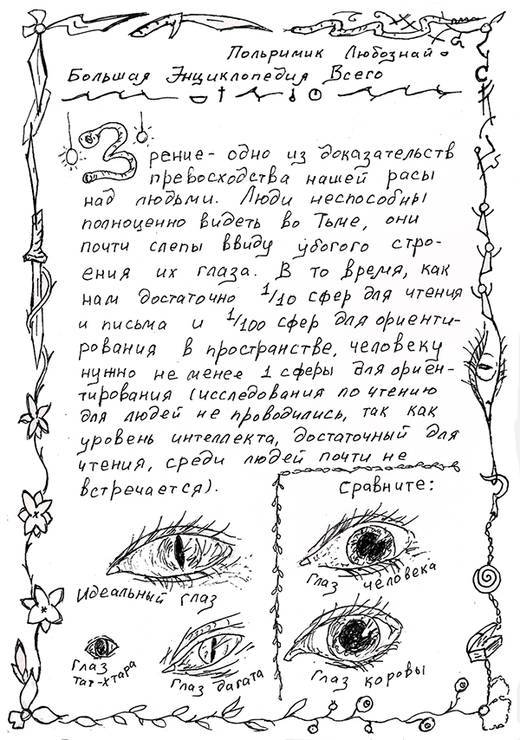 Польримик Любознай
Большая Энциклопедия Всего
Зрение- одно из доказательств
превосходства нашей расы
над людьми. Люди неспособны
полноценно видеть во Тьме, они
почти слепы ввиду убогого стро-
ения их глаза. В то время, как
нам достаточно 1/10 сфер для чтения
и письма и 1/100 сфер для ориенти-
рования в пространстве, человеку
нужно не менее 1 сферы для ориен-
тирования (исследования по чтению
для людей не проводились, так как
уровень интеллекта, достаточный для
чтения, среди людей почти не
встречается).
Идеальный глаз
Глаз
тат-хтара
Глаз дагата
Сравните:
Глаз человека
Глаз коровы